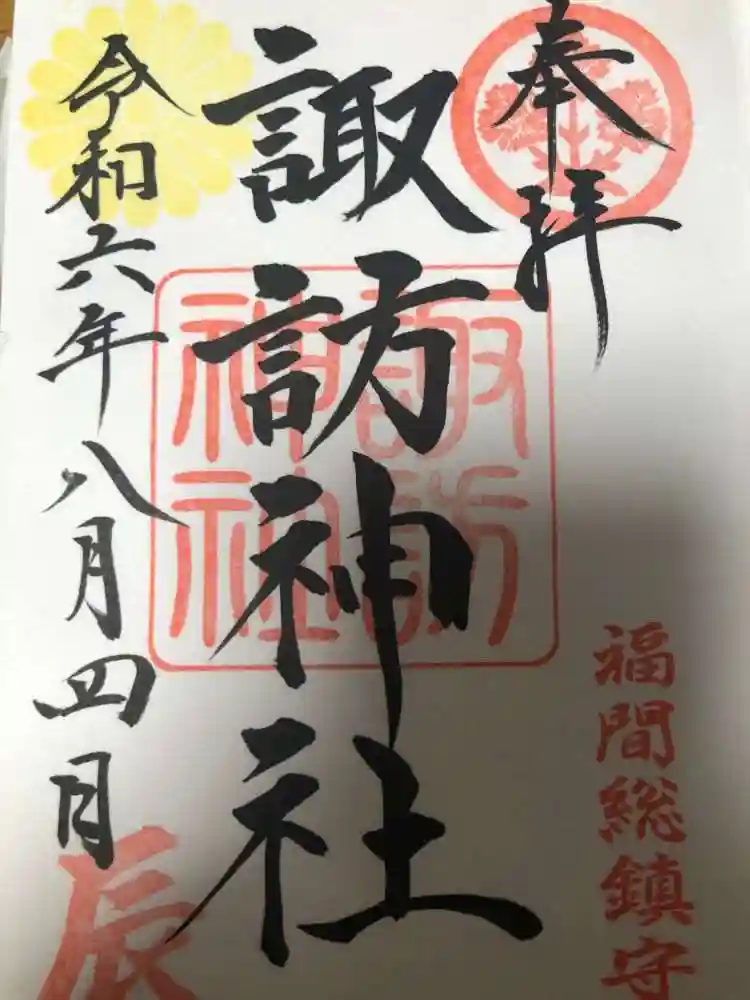 奉拝
福間総鎮守
諏訪神社
諏訪
神社
令和六年八月四日
辰